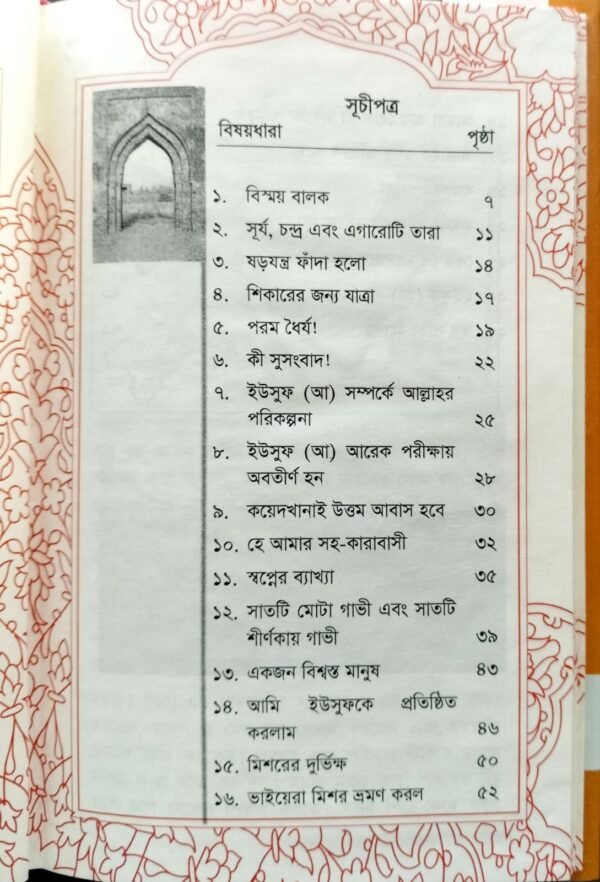 সূচীপত্র
বিষয়ধারা পৃষ্ঠা
১. বিস্ময় বালক ৭
২. সূর্য, চন্দ্র এবং এগারোটি তারা ১১
৩. ষড়যন্ত্র ফাঁদা হলো ১৪
৪. শিকারের জন্য যাত্রা ১৭
৫. পরম ধৈর্য! ১৯
৬. কী সুসংবাদ! ২২
৭. ইউসুফ (আ) সম্পর্কে আল্লাহর
পরিকল্পনা ২৫
৮. ইউসুফ (আ) আরেক পরীক্ষায়
অবতীর্ণ হন ২৮
৯. কয়েদখানাই উত্তম আবাস হবে ৩০
১০. হে আমার সহ-কারাবাসী ৩২
১১. স্বপ্নের ব্যাখ্যা ৩৫
১২. সাতটি মোটা গাভী এবং সাতটি
শীর্ণকায় গাভী ৩৯
১৩. একজন বিশ্বস্ত মানুষ ৪৩
১৪. আমি ইউসুফকে প্রতিষ্ঠিত
করলাম ৪৬
১৫. মিশরের দুর্ভিক্ষ ৫০
১৬. ভাইয়েরা মিশর ভ্রমণ করল ৫২